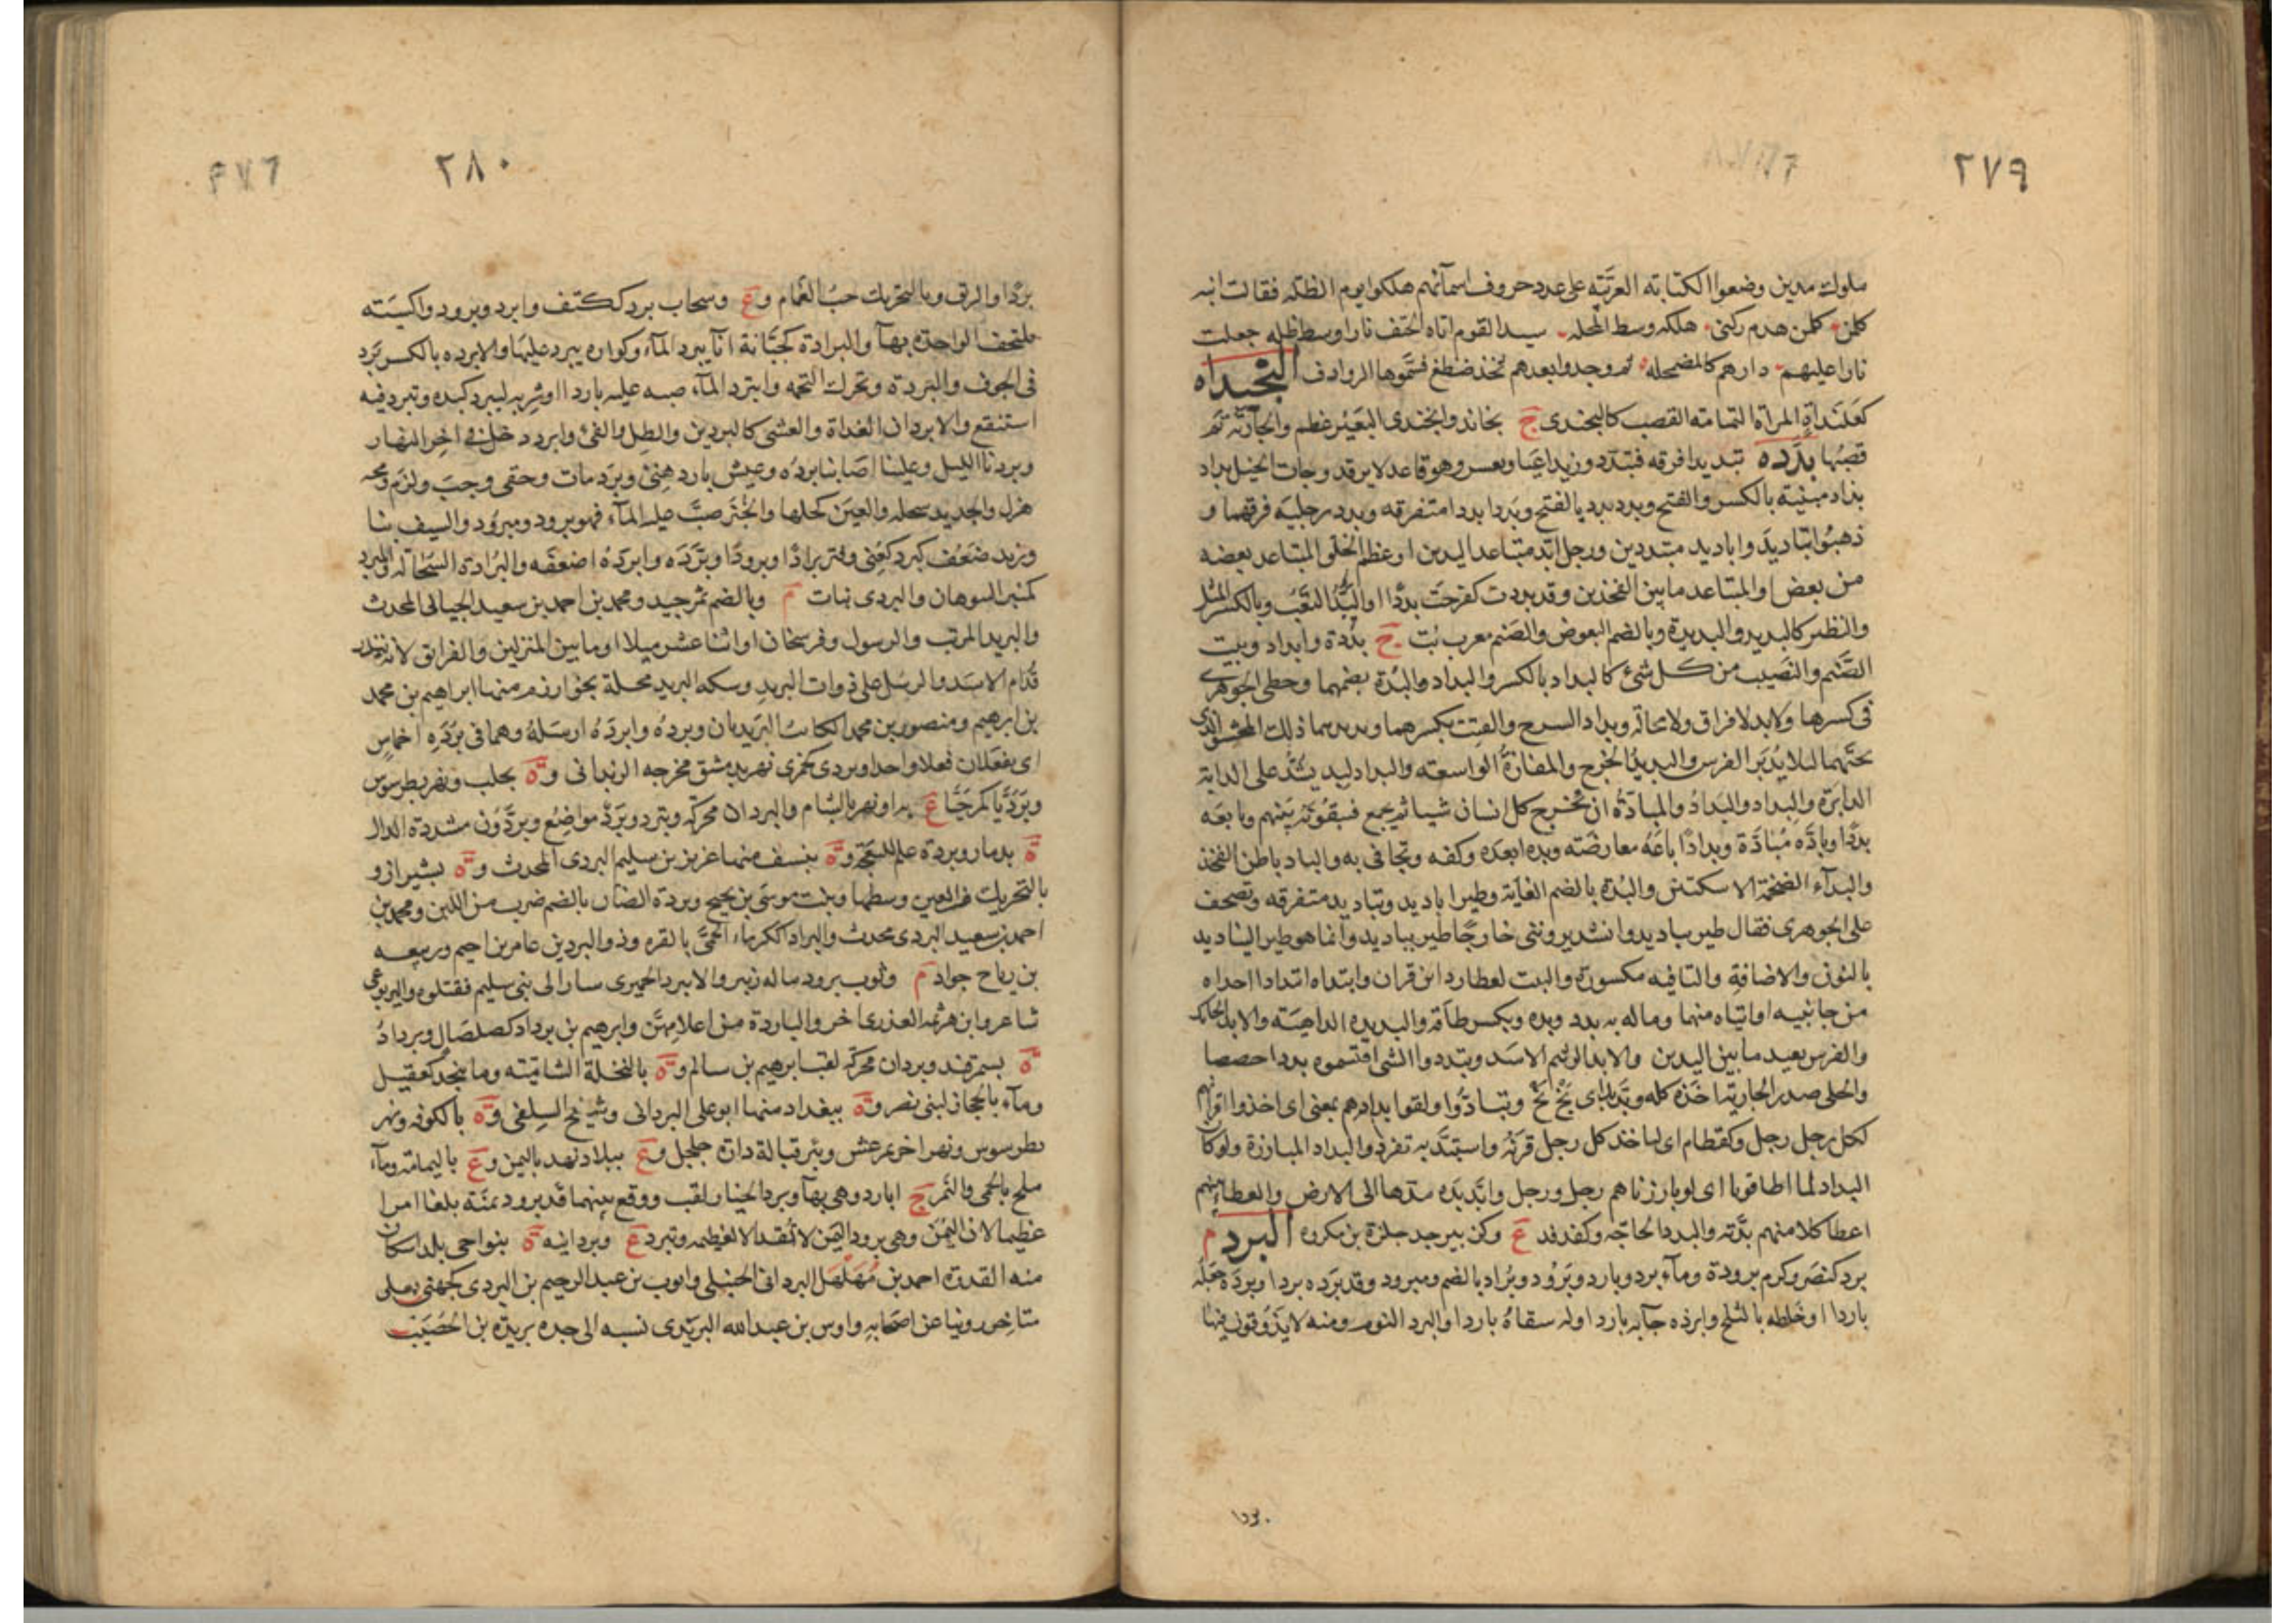 ٢٧٩
ملوك مدين وضعوا الكتابة العربية على عدد حروف اسمآئهم هلكوا يوم الظلة فقالت ابنه
كلمن كلمن هدم ركنى هلكه وسط المحله سيد القوم اتاه الحتف نارا وسط ظله جعلت
نارا عليهم دارهم كالمضمحله ثم وجدوا بعدهم ثخذ ضظغ فسموها الروادف البخنداه
كعلنداة المراة التمامة القصب كالبخندى ج بخاند وابخندى البعير عظم والجارية تم
قصبها بدده تبديدا فرقه فتبدد وزيد اعيا ونعس وهو قاعد لا يرقد وجات الخيل بداد
بداد مبنية بالكسر والفتح وبدد بدد بالفتح وبددا بددا متفرقه وبدد رجليه فرقهما و
ذهبوا تباديد واباديد متبددين ورجل ابد متباعد اليدين او عظم الخلق المتباعد بعضه
من بعض او المتباعد ما بين الفخذين وقد بددت كفرحت بددا والبد التعب وبالكسر المثل
والنظير كالبديد والبديدة وبالضم البعوض والصنم معرب بت ج بددة وابداد وبيت
الصنم والنصيب من كل شئ كالبداد بالكسر والبداد والبدة بضمهما وخطئ الجوهرى
فى كسرها ولا بد لا فراق ولا محالة وبداد السرج والقتب بكسرهما وبديدهما ذلك المحشو الذى
تحتهما لئلا يدبر الفرس والبديد الخرج والمفازة الواسعة والبداد لبد يشد على الدابة
الدابرة والبداد والبداد والمبادة ان يخرج كل انسان شيا ثم يجمع فينفقونه بينهم وبايعه
بددا وباده مبادة وبدادا باعه معارضة وبده ابعده وكفه وتجافى به والباد باطن الفخذ
والبدآء الضخمة الاسكتين والبدة بالضم الغاية وطير اباديد وتباديد متفرقه وتصحف
على الجوهرى فقال طير يباديد وانشد يرونني خارجا طير يباديد وانما هو طير اليناديد
بالنون والاضافة والقافيه مكسورة والبيت لعطارد ابن قران وابتداه ابتدادا اخذاه
من جانبيه او اتياه منهما وماله به بدد وبده ويكسر طاقة والبديده الداهية والابد الحائك
والفرس بعيد ما بين اليدين والابد الزنيم الاسد وتبددوا الشئ اقتسموه بددا حصصا
والحلى صدر الجارية اخذه كله وتبدبد اى بخ بخ وتبادوا ولقوا بدادهم بمعنى اى اخذوا اقرانهم
لكل رجل رجل وكقطام اى لياخذ كل رجل قرنه واستبد به تفرد والبداد المبارزة ولو كان
البداد لما اطاقونا اى لو بارزناهم رجل ورجل وابد يده مدها الى الارض والعطاء بينهم
اعطا كلا منهم بدته والبدد الحاجة وكفدفد ع وكزبير جد جلزة بن مكروه البرد م
برد كنصر وكرم برودة ومآء برد وبارد وبرود وبراد بالضم ومبرود وقد برده بردا وبرده جعله
باردا او خلطه بالثلج وابرده جآء به باردا وله سقاه باردا والبرد النوم ومنه لا يذوقون فيها
بردا
٢٨٠
٢٧٦
بردا والريق وبالتحريك حب الغمام وع وسحاب برد ككتف وابرد وبرود واكسية
يلتحف الواحدة بهآ والبرادة كجبانة انآ يبرد المآء وكواره يبرد عليها والابرده بالكسر برد
فى الجوف والبردة وتحرك التخمه وابترد المآء صبه عليه باردا او شربه ليبرد كبده وتبرد فيه
استنقع والابردان الغداة والعشى كالبردين والظل والفئ وابرد دخل فى اخر النهار
وبردنا الليل وعلينا اصابنا برده وعيش بارد هنئ وبرد مات وحقى وجب ولزم ومخه
هزل والحديد سحله والعين كحلها والخبز صب عليه المآء فهو برود ومبرود والسيف نبا
وزيد ضعف كبرد كعنى وفتر برادا وبرودا وبرده وابرده اضعفه والبرادة السحالة والمبرد
كمنبر السوهان والبردى نبات م وبالضم تمر جيد ومحمد بن احمد بن سعيد الجيانى المحدث
والبريد المرتب والرسول وفرسخان او اثنا عشر ميلا او ما بين المنزلين والفرانق لانه ينذر
قدام الاسد والرسل على دوات البريد وسكه البريد محلة بخوارزم منها ابراهيم بن محمد
بن ابرهيم ومنصور بن محمد الكاتب البريديان وبرده وابرده ارسله وهما فى بردة اخماس
اى يفعلان فعلا واحدا وبردى كجمزى نهر بدمشق مخرجه الزبدانى وة بحلب ونهر بطرسوس
وبرديا كمرحيا ع بها ونهر بالشام والبردان محركه وتبرد وبرد مواضع وبردون مشددة الدال
ة بدمار وبردة علم للنعجة وة بنسف منها عزيز بن سليم البردى المحدث وة بشيراز و
بالتحريك من العين وسطها وبنت موسى بن يحيى وبردة الضان بالضم ضرب من اللبن ومحمد بن
احمد بن سعيد البردى محدث والبرداء ككرماء الحمى بالقره وذو البردين عامر بن احيمر وربيعه
بن رياح جواد م وثوب برود ماله زئبر والابيرد الحميرى سار الى بنى سليم فقتلوه واليربوعى
شاعر وابن هرثمه العذرى اخر والباردة من اعلامهن وابرهيم بن برداد كصلصال وبرداد
ة بسمرقند وبردان محركه لقب ابرهيم بن سالم وة بالنخلة الشامية وما بنجد لعقيل
ومآء بالحجاز لبنى نصر وة ببغداد منها ابو على البردانى وشيخ السلفى وة بالكوفه ونهر
بطرسوس ونهر اخر بمرعش وبئر بتبالة دارة جلجل وع ببلاد نهد باليمن وع باليمامة ومآء
ملح بالحمى والنمر ج ابارد وهى بهآ وبرد الخيار لقب ووقع بينهما قد برود يمنة بلغا امرا
عظيما لان اليمن وهى برود اليمن لا تقد الا لعظيمه وتبرد ع وبردانيه ة بنواحى بلد اسكاف
منه القدوة احمد بن مهلهل البردانى الحنبلى وايوب بن عبد الرحيم بن البردى كجهنى بعلى
متاخر روينا عن اصحابه واوس بن عبد الله البريدى نسبه الى جده بريدة بن الحصيب